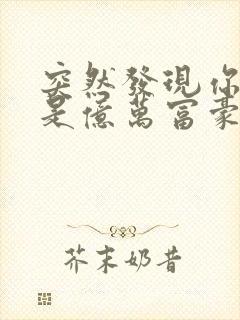 突然發現你
是億萬富豪
芥末奶昔